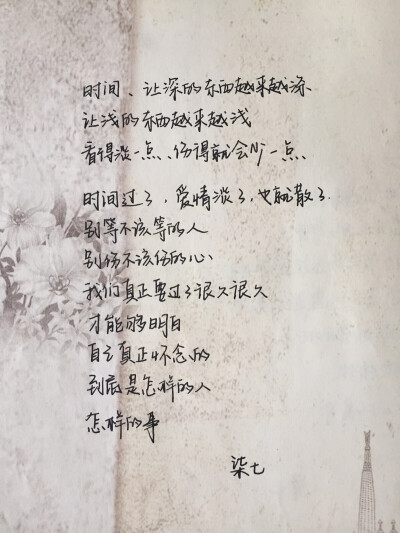 时间、让深的东西越来越深、
让浅的东西越来越浅
看得淡一点、伤得就会少一点、
时间过了，爱情淡了，也就散了.
别等不该等的人
别伤不该伤的心
我们真正要过了很久很久
才能够明白
自己真正怀念的
到底是怎样的人
怎样的事
柒七